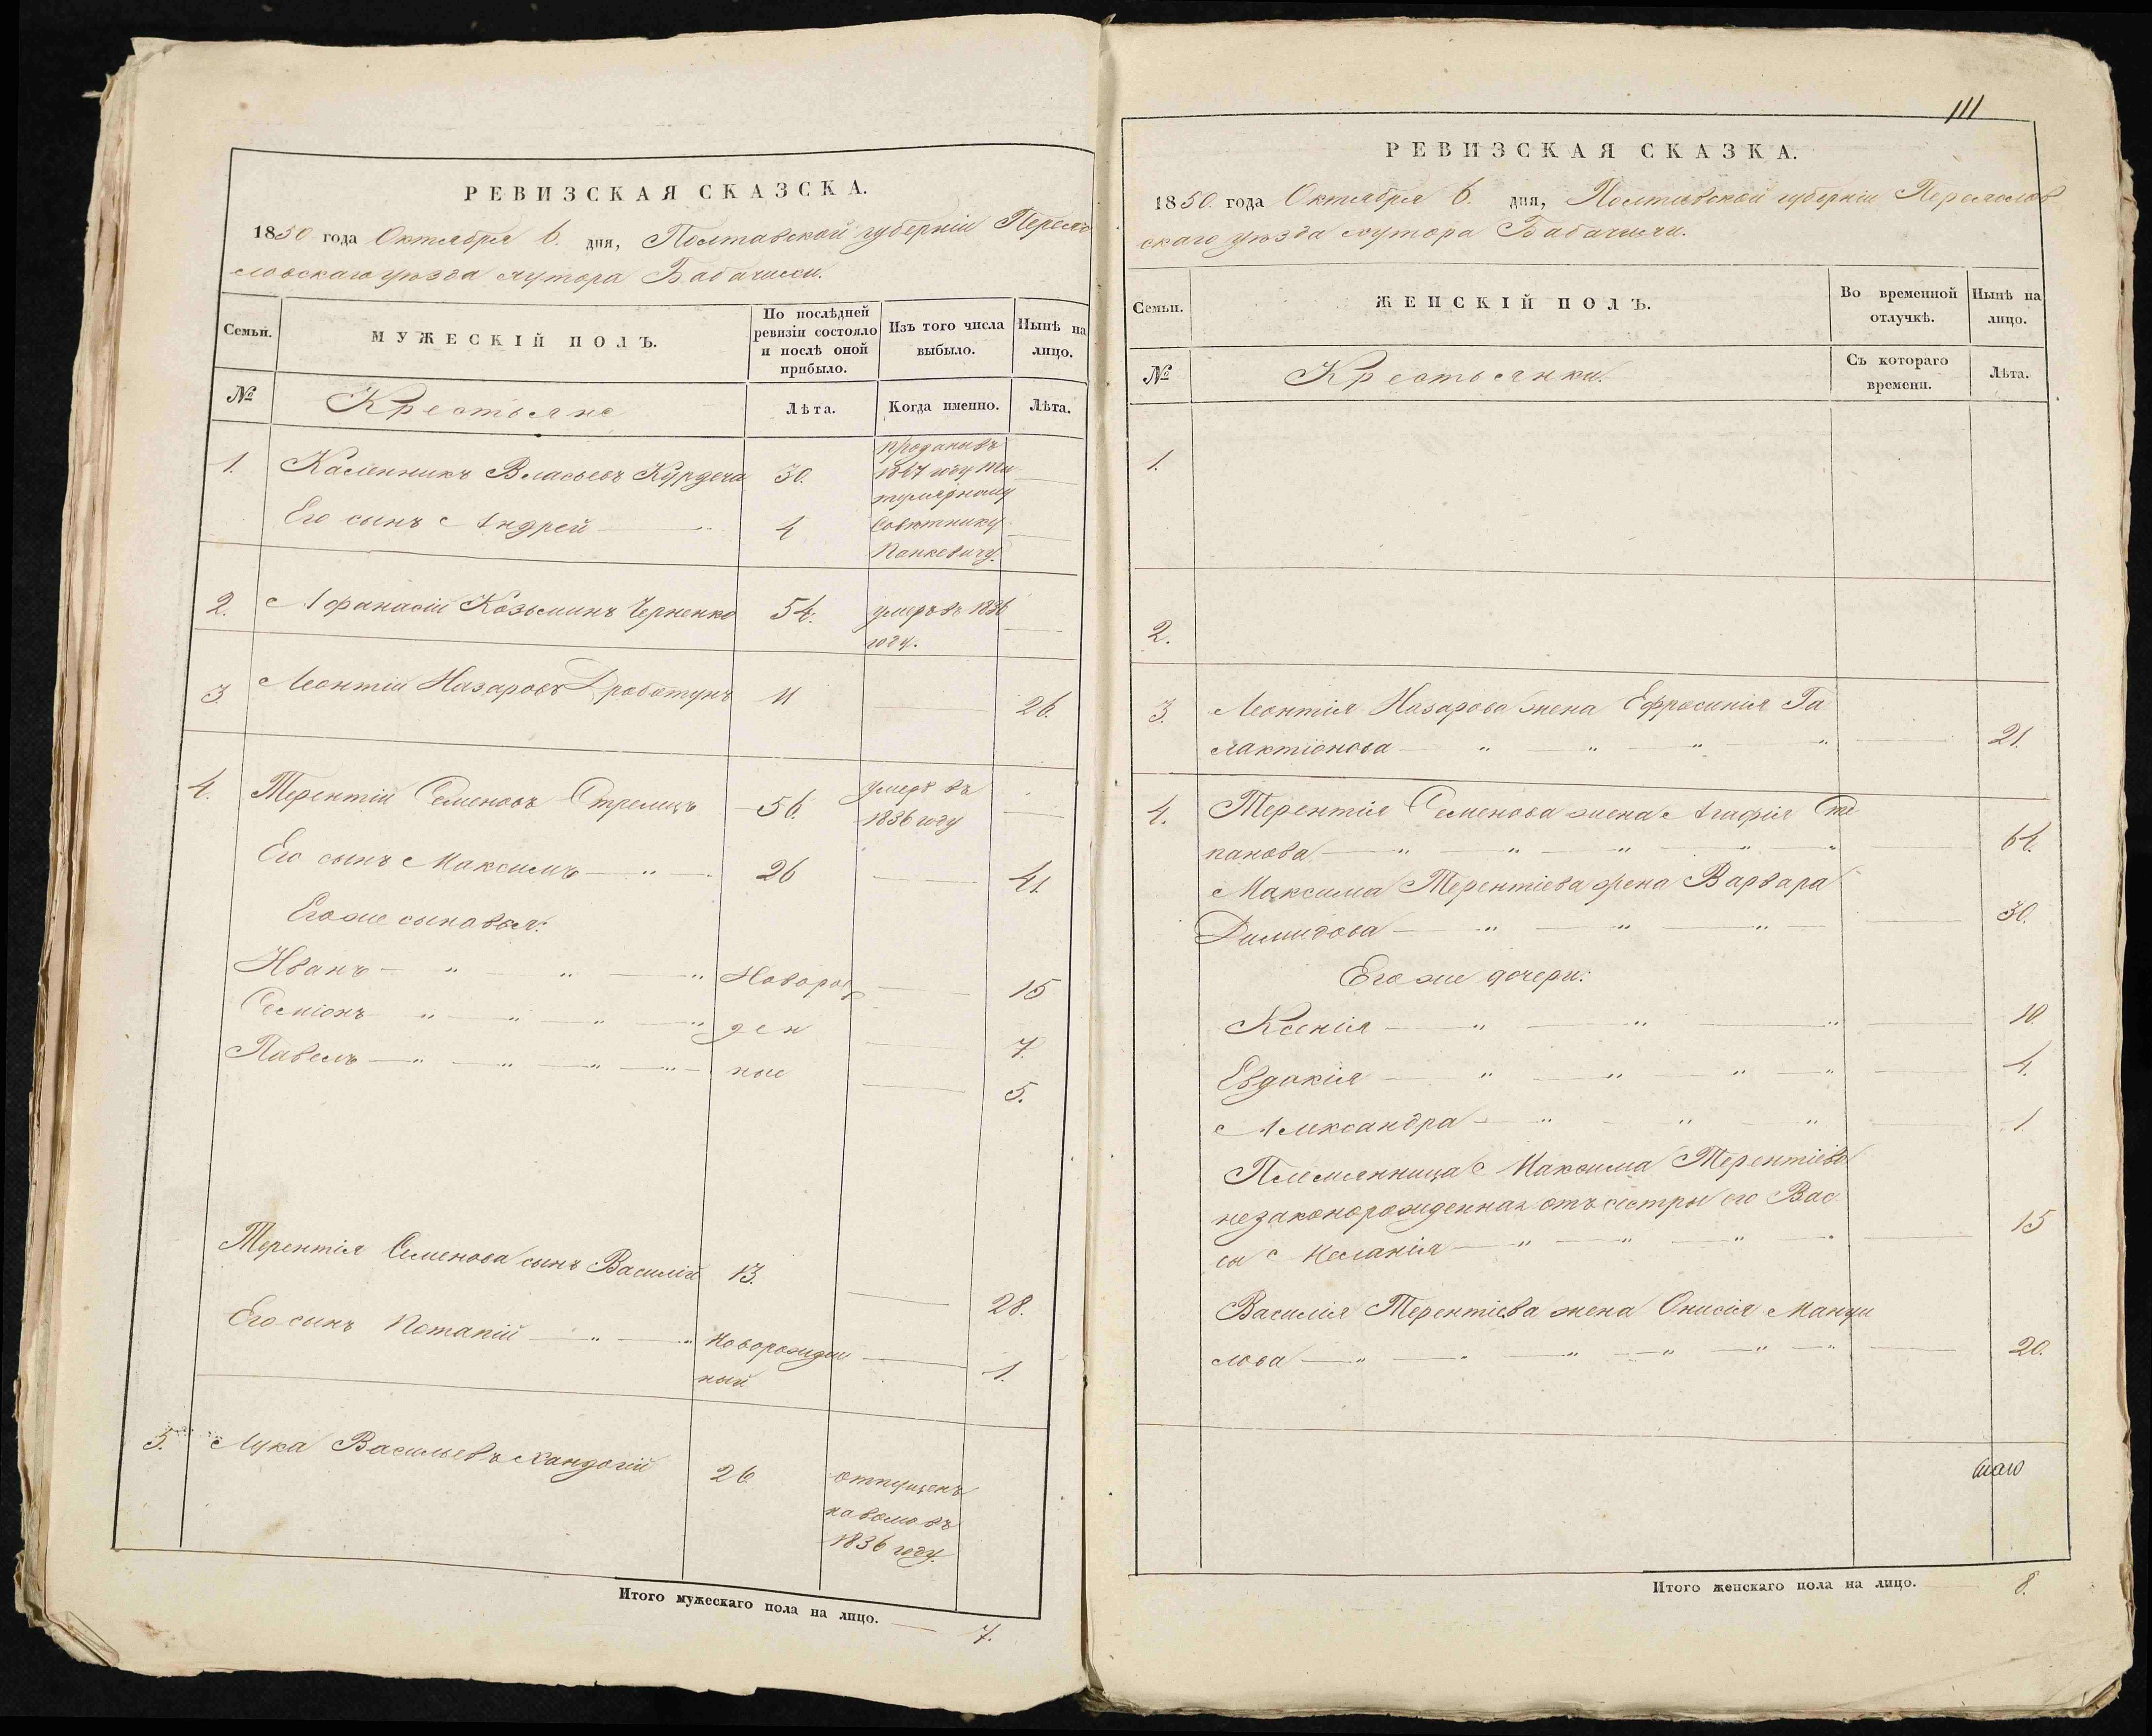 РЕВИЗСКАЯ СКАЗСКА.
1850 года Октября 6. дня, Полтавской губерніи Переяс
ловскаго уѣзда хутора Бабачихи.
Семьи.
МУЖЕСКІЙ ПОЛЪ.
По послѣдней
ревизіи состояло
и послѣ оной
прибыло.
Изъ того числа
выбыло.
Нынѣ на
лицо.
№
Крестьяне
Лѣта.
Когда именно.
Лѣта.
проданы въ
1. Каленникъ Власьевъ 30. 1847 году Ти
тулярному
Его сынъ Андрей 4 Совѣтнику
Панкевичу.
2. Афанасій Козьминъ Черненко 54. умеръ въ 1836
году.
3. Леонтій Назаровъ Дроботунъ 11 26.
4. Терентій Семеновъ Стрелецъ 56. умеръ въ
1836 году
Его сынъ Максимъ — „ — 26 41.
Его же сыновья:
Иванъ — „ — „ — „ Новорож 15
Семіонъ — „ — „ — „ — „ ден 7.
Павелъ — „ — „ — „ — „ — ные 5.
Терентія Семенова сынъ Василій 13. 28.
Его сынъ Потапій — „ — „ Новорожден 1.
ный
5. Лука Васильевъ 26 отпущенъ
на волю въ
1836 году.
Итого мужескаго пола на лицо. — 7.
111
РЕВИЗСКАЯ СКАЗКА.
1850. года Октября 6. дня, Полтавской губерніи Переяслов
скаго уѣзда хутора Бабачихи.
Семьи.
ЖЕНСКІЙ ПОЛЪ.
Во временной
отлучкѣ.
Нынѣ на
лицо.
№
Крестьянки.
Съ котораго
времени.
Лѣта.
1.
2.
3. Леонтія Назарова жена Ефросинія Га
лактіонова — „ — „ — „ — „ 21.
4. Терентія Семенова жена Агафія Сте
панова — „ — „ — „ — „ — „ 64.
Максима Терентіева жена Варвара
Димидова — „ — „ — „ — 30.
Его же дочери:
Ксенія — „ — „ — „ 10.
Евдокія — „ — „ — „ — „ 4.
Александра — „ „ „ 1
Племянница Максима Терентіева
незаконорожденная отъ сестры его Вас
сы Меланія — „ — „ — „ — „ 15
Василія Терентіева жена Онисія Мануи
лова — „ — „ — „ — „ — „ — „ 20.
Итого женскаго пола на лицо. 8.